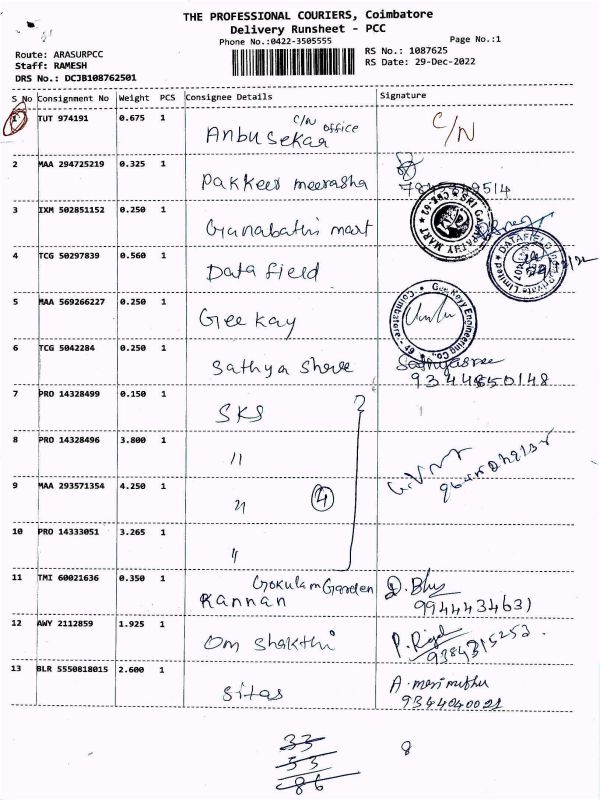 THE PROFESSIONAL COURIERS, Coimbatore
Delivery Runsheet - PCC
Phone No.:0422-3505555
Page No.:1
Route: ARASURPCC
RS No.: 1087625
Staff: RAMESH
RS Date: 29-Dec-2022
DRS No.: DCJB108762501
S No Consignment No Weight PCS Consignee Details Signature
1 TUT 974191 0.675 1 C/N office C/N
Anbu sekar
2 MAA 294725219 0.325 1
Pakkeer meerasha
3 IXM 502851152 0.250 1
Ganabathi mart
SRI GANAPATHY MART
4 TCG 50297839 0.560 1
Data field
DATAFIELD Private Limited
5 MAA 569266227 0.250 1
Gee Kay
Gee Kayy Engineering Co., Coimbatore
6 TCG 5042284 0.250 1
Sathya Shree Sathyasree
93448 50148
7 PRO 14328499 0.150 1
SKS
8 PRO 14328496 3.800 1
"
9 MAA 293571354 4.250 1
" 4
10 PRO 14333051 3.265 1
"
11 TMI 60021636 0.350 1 Gokulam Garden
Kannan 9944434631
12 AWY 2112859 1.925 1
Om Shakthi 9384315252
13 BLR 5550818015 2.600 1
Sitas
9344040021
33
53
86
8